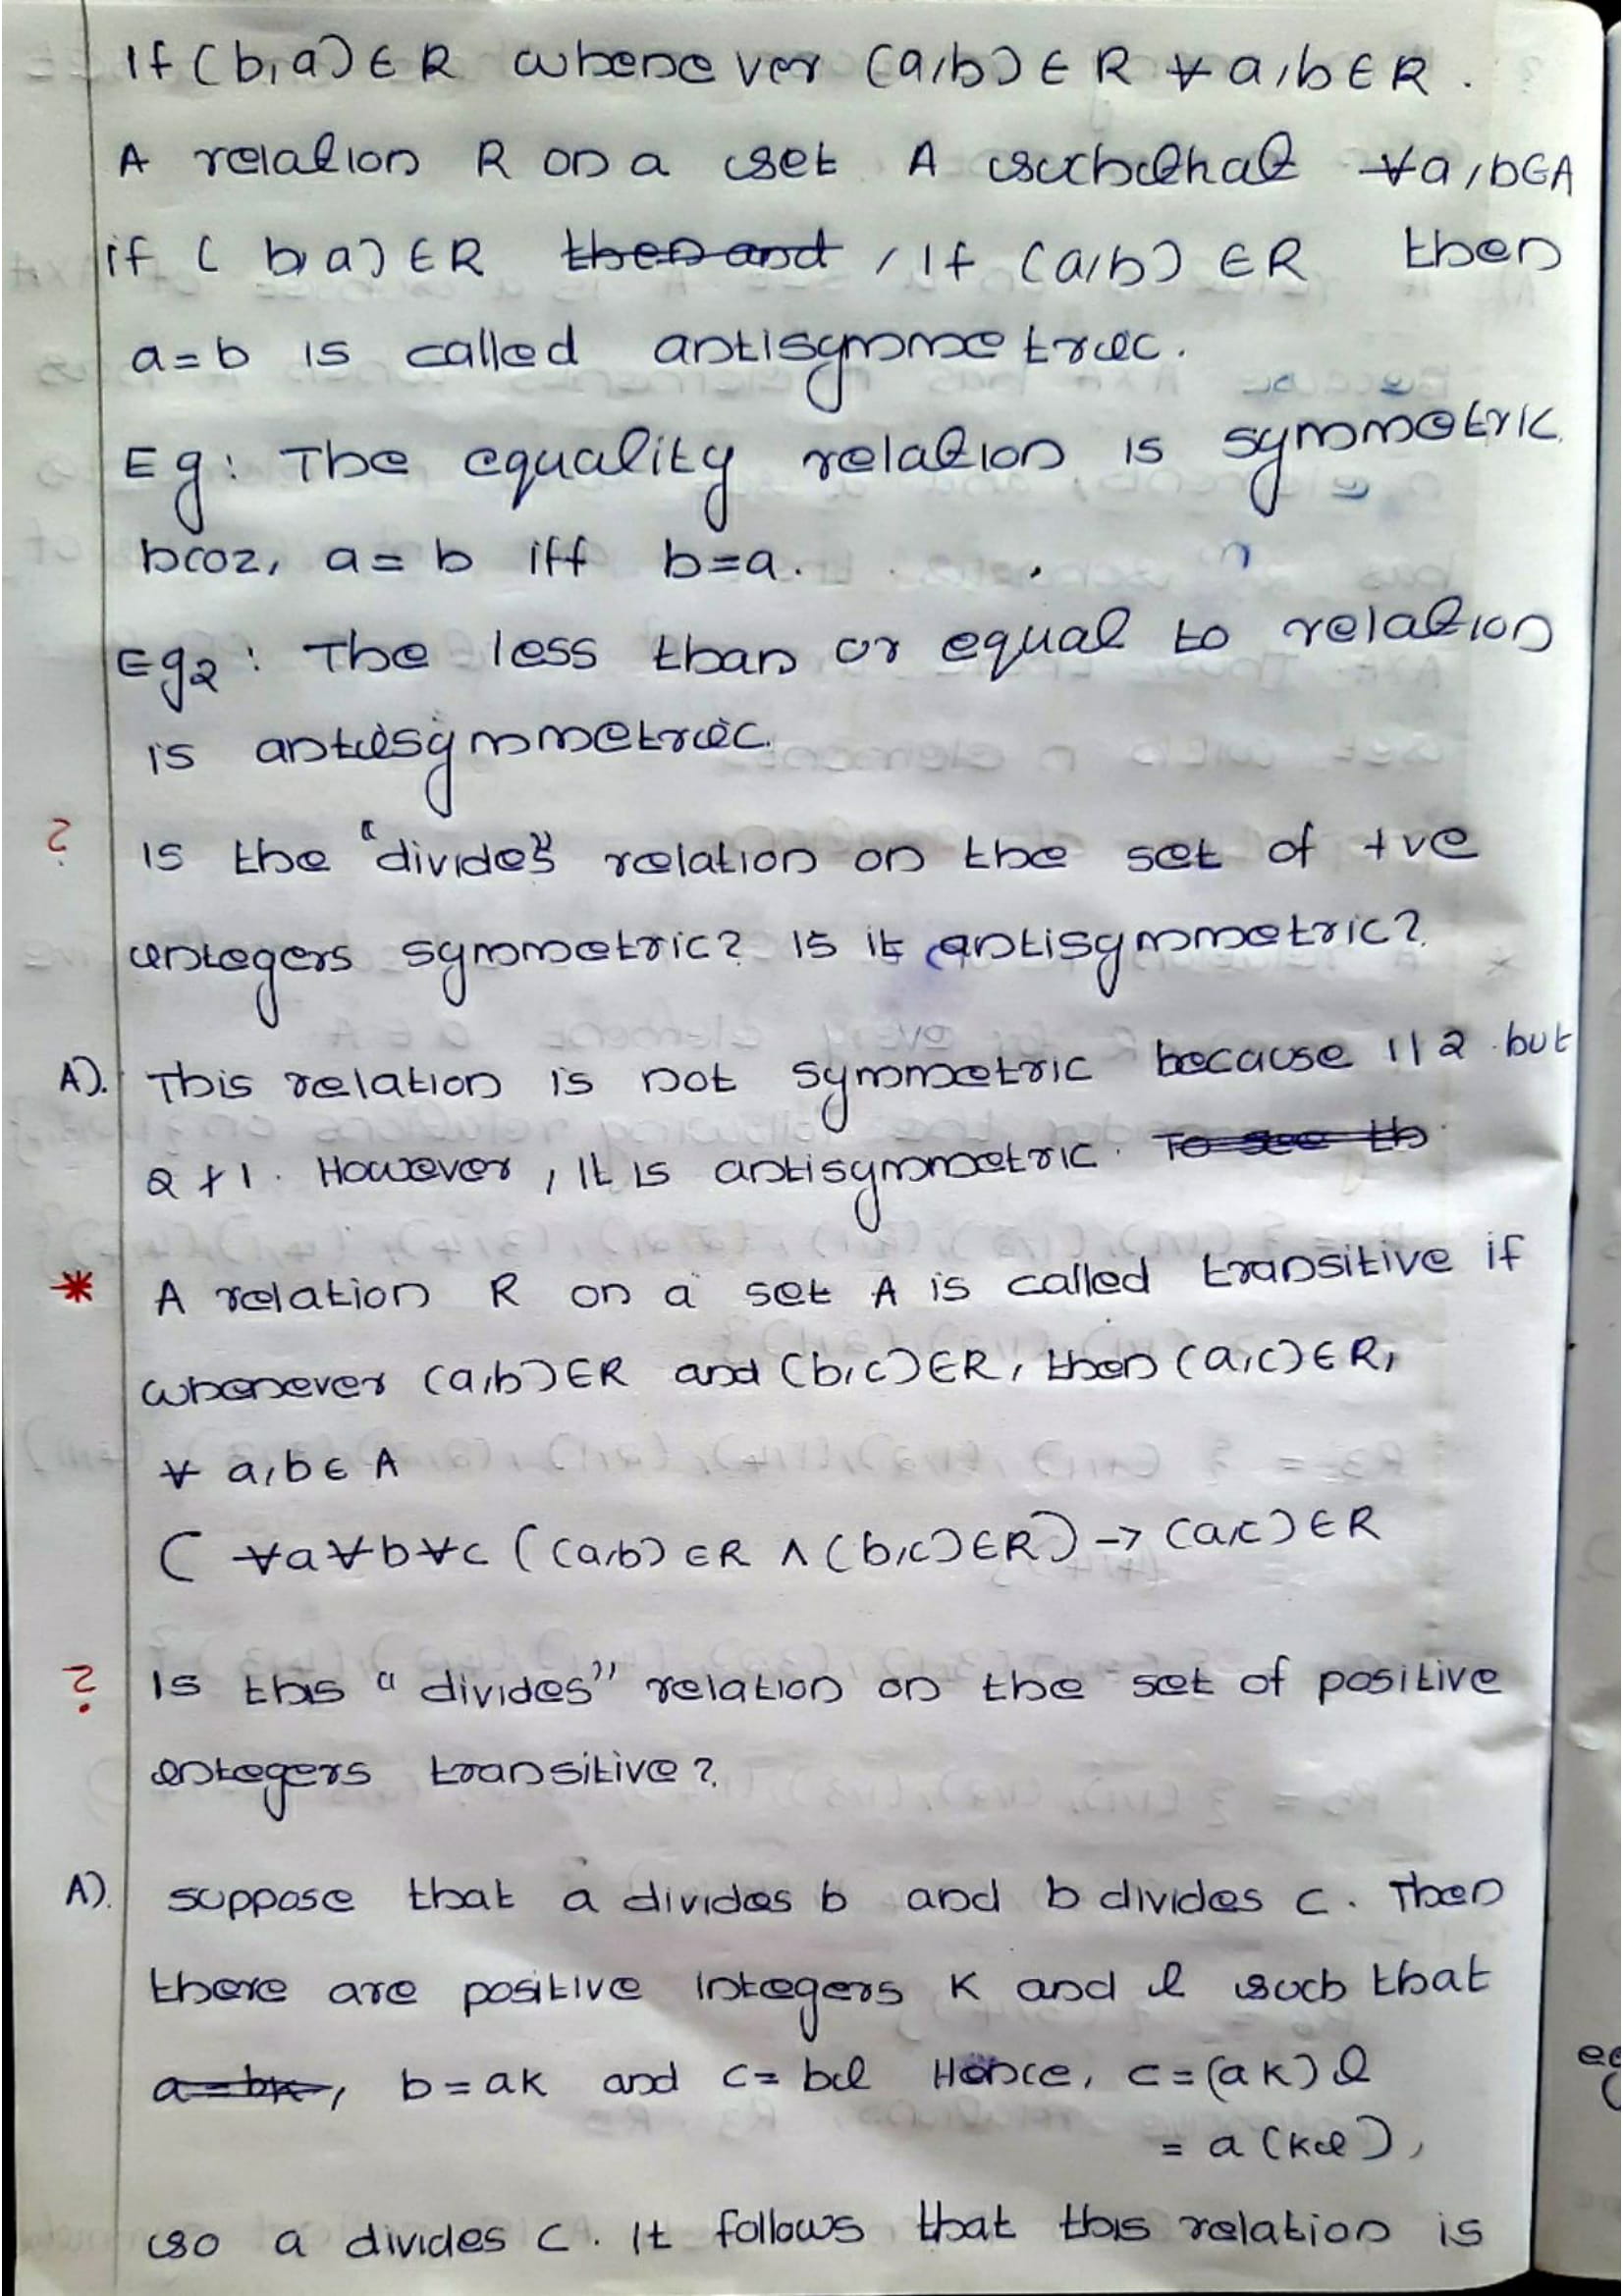 If (b,a) ∈ R whenever (a,b) ∈ R ∀ a,b ∈ R.
A relation R on a set A such that ∀a,b ∈ A
if (b,a) ∈ R then and , if (a,b) ∈ R then
a=b is called antisymmetric.
Eg: The equality relation is symmetric
bcoz, a=b iff b=a.
Eg2: The less than or equal to relation
is antisymmetric.
? Is the "divides" relation on the set of +ve
integers symmetric? Is it antisymmetric?
A). This relation is not symmetric because 1|2 but
2∤1. However, it is antisymmetric. To see th
* A relation R on a set A is called transitive if
whenever (a,b) ∈ R and (b,c) ∈ R, then (a,c) ∈ R,
∀ a,b ∈ A
( ∀a∀b∀c ((a,b) ∈ R ∧ (b,c) ∈ R) → (a,c) ∈ R
? Is this "divides" relation on the set of positive
integers transitive?
A). suppose that a divides b and b divides c. Then
there are positive integers K and l such that
a=bk, b=ak and c=bl Hence, c=(ak)l
= a(kl),
so a divides c. It follows that this relation is
eg